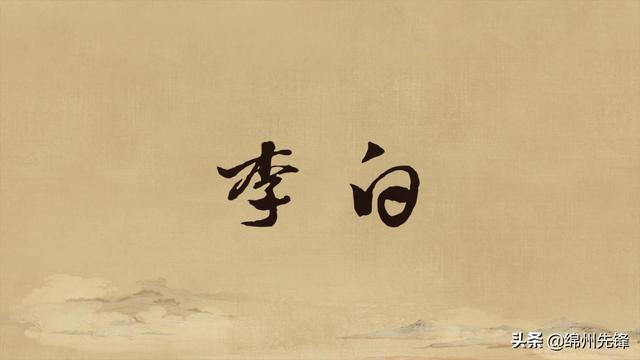 李白
头条 @绵州先锋